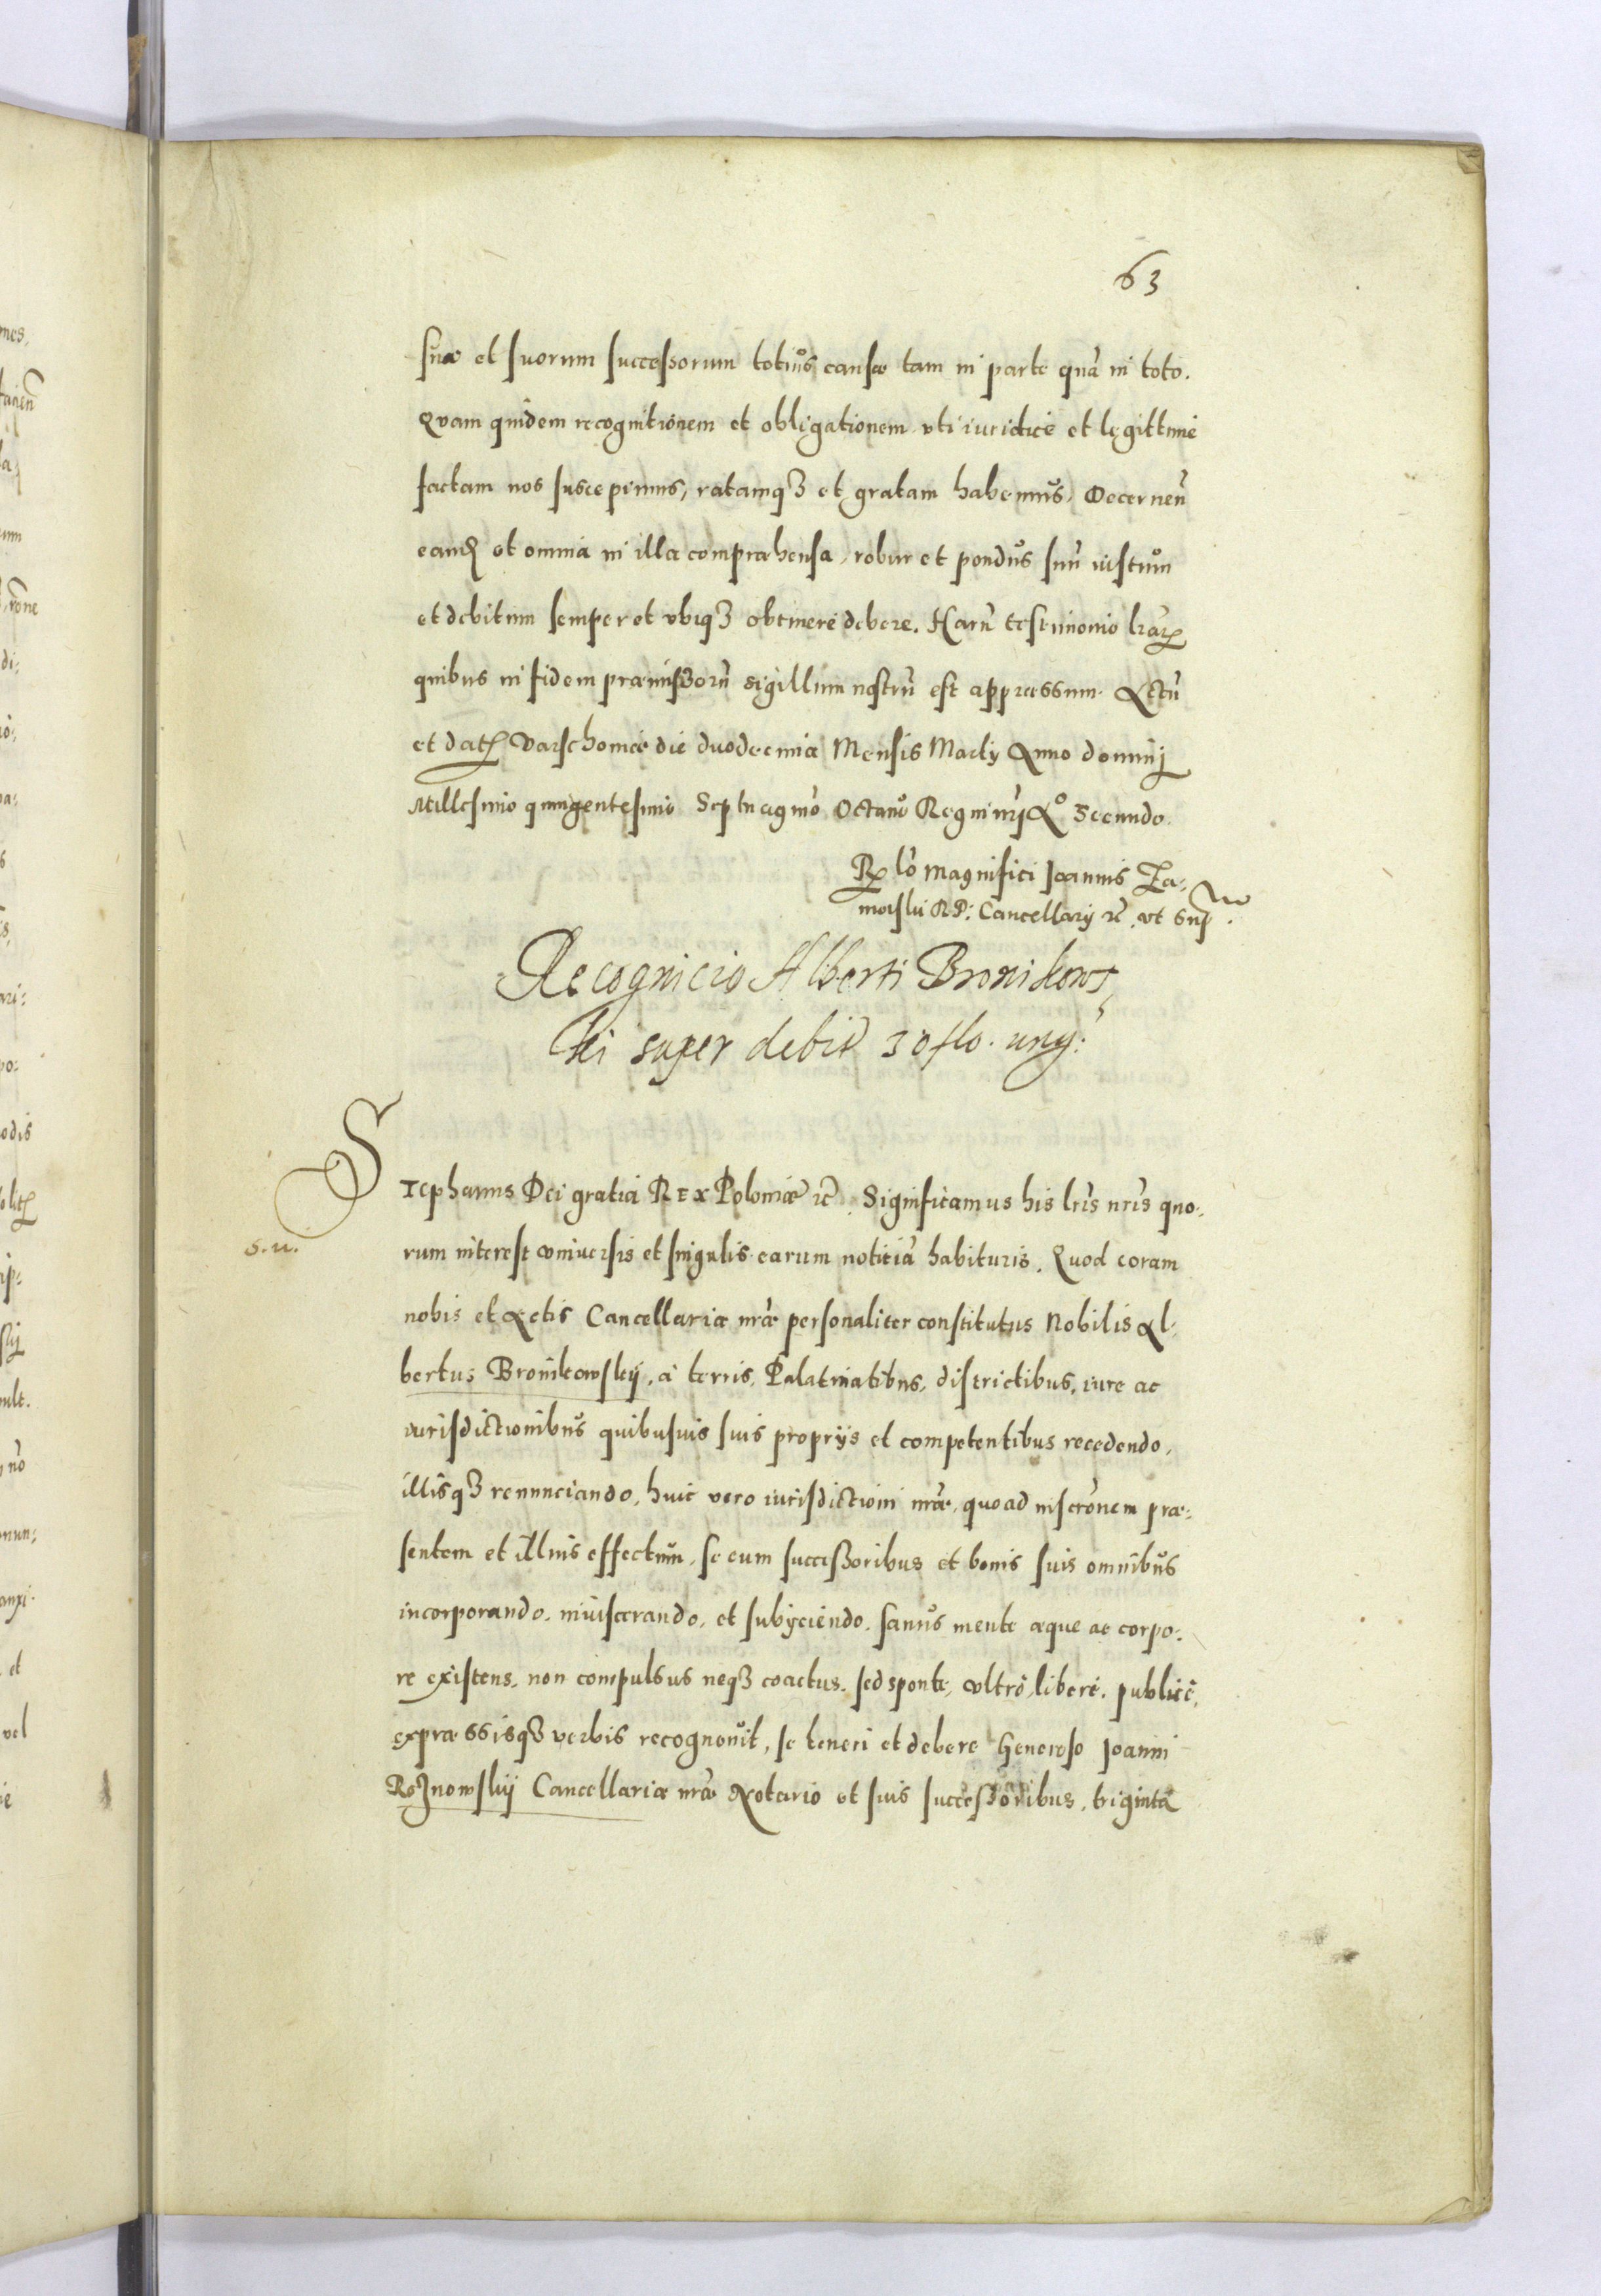 63
suæ et suorum successorum totius causæ tam in parte quā in toto.
Quam quidem recognitionem et obligationem uti iuridicè et legittimè
factam nos suscepimus, ratamqʒ et gratam habemus, Decerneñ
eand et omnia in illa compræhensa, robur et pondus suū iustum
et debitum semper et ubiqʒ obtinere debere. Harū testimonio lrarꝝ
quibus in fidem præmissorū sigillum nostrū est appræssum. Actū
et datꝭ Varschouiæ die duodecima Mensis Martÿ Anno dominj
Millesimo quingentesimo Septuagmo Octauo Regni nrj Ao Secundo.
Rꝑ lo Magnifici Joannis Za-
moiskii R. P: Cancellarÿ rc. ut sup.
Recognicio Alberti Bronikows
kii super debit 30 flo. ung:
Stephanus Dei gratia Rex Poloniæ rc. Significamus his lris nris quo-
s.n.
rum interest vniuersis et singulis earum notitiā habituris. Quod coram
nobis et Actis Cancellariæ nræ personaliter constitutus Nobilis Al-
bertus Bronikowskÿ, a terris, Palatinatibus, districtibus, iure ac
iurisdictionibus quibusuis suis proprÿs et competentibus recedendo,
illisqʒ renunciando, huic vero iurisdictioni nræ, quoad inscrōnem præ-
sentem et illius effectum, se cum successoribus et bonis suis omnibus
incorporando, inuiscerando, et subÿciendo, sanus mente æque ac corpo-
re existens, non compulsus neqʒ coactus, sed sponte, vltro, liberè, publicè,
expræssisqʒ verbis recognouit, se teneri et debere Generoso Joanni
Roznowskÿ Cancellariæ nræ Notario et suis successoribus, triginta